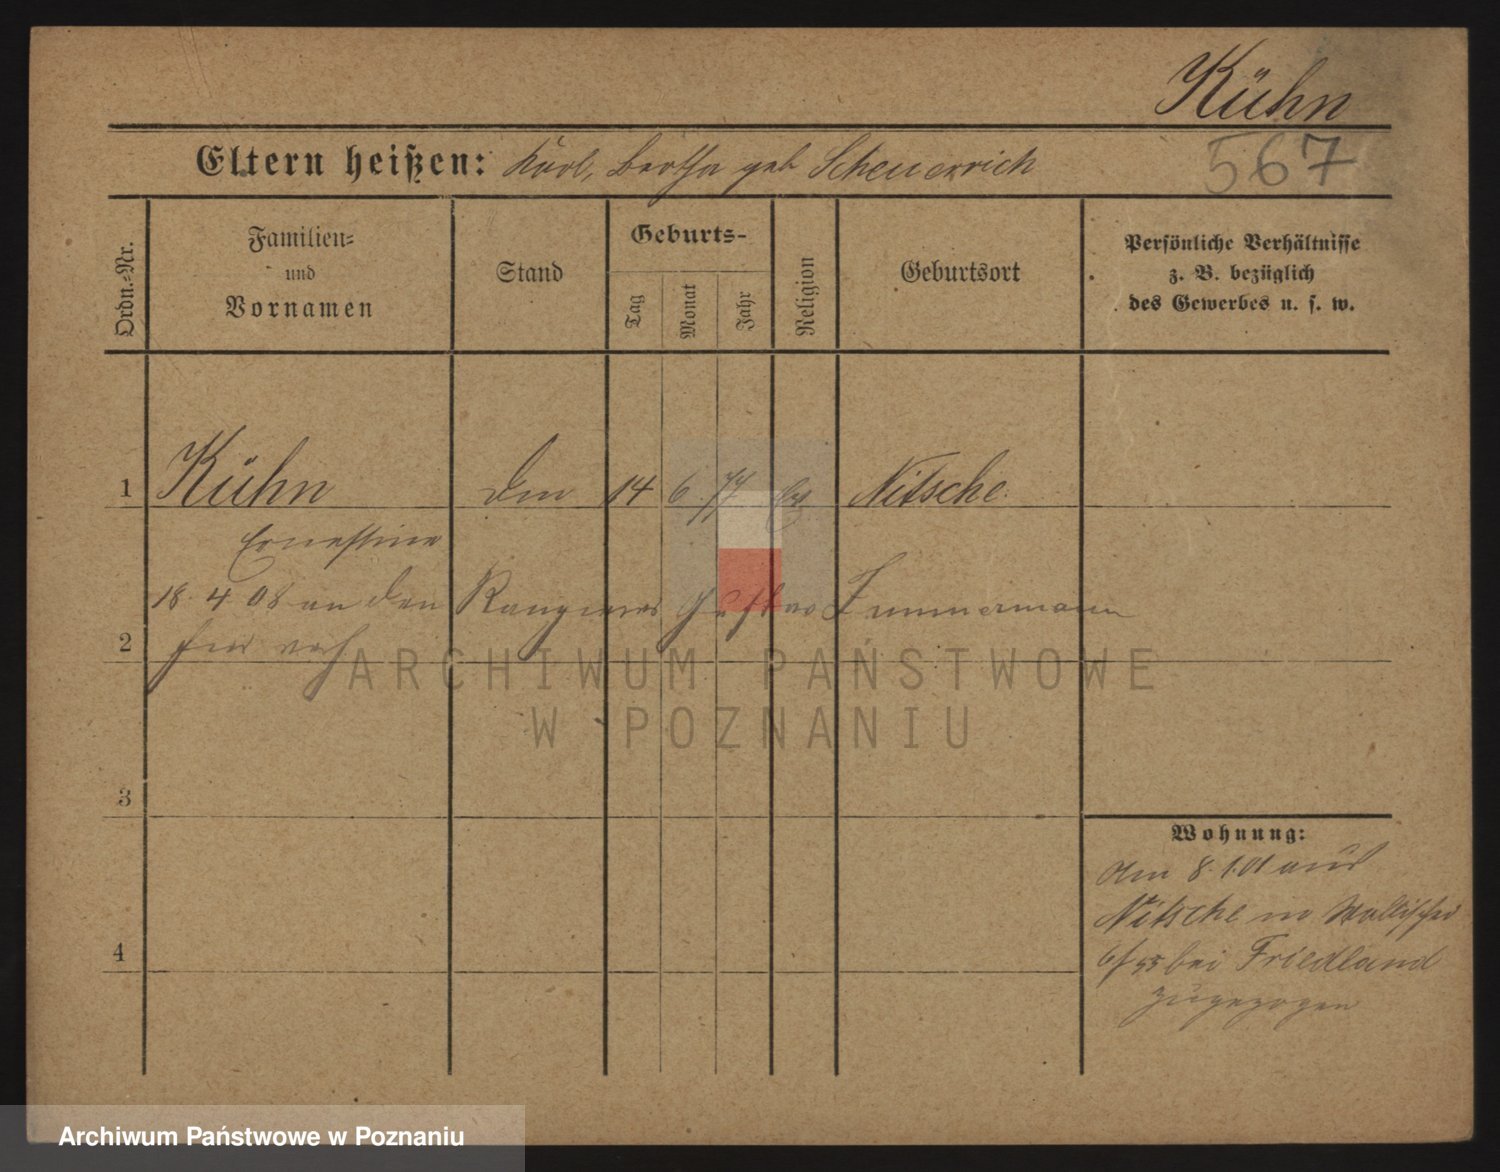 Kühn
Eltern heißen: Karl, Bertha geb Scheuerrich
567
Ordn.-Nr.
Familien-
und
Vornamen
Stand
Geburts-
Tag
Monat
Jahr
Religion
Geburtsort
Persönliche Verhältnisse
z. B. bezüglich
des Gewerbes u. s. w.
1 Kühn 14 6. 77 Nitsche.
Ernestine
18. 4 08 an den Rangierer Gustav Zimmermann
2
ARCHIWUM PAŃSTWOWE
W POZNANIU
3
Wohnung:
Am 8. 1.01 aus
Nitsche in Wallischei
4
bei Friedland
zugezogen
Archiwum Państwowe w Poznaniu